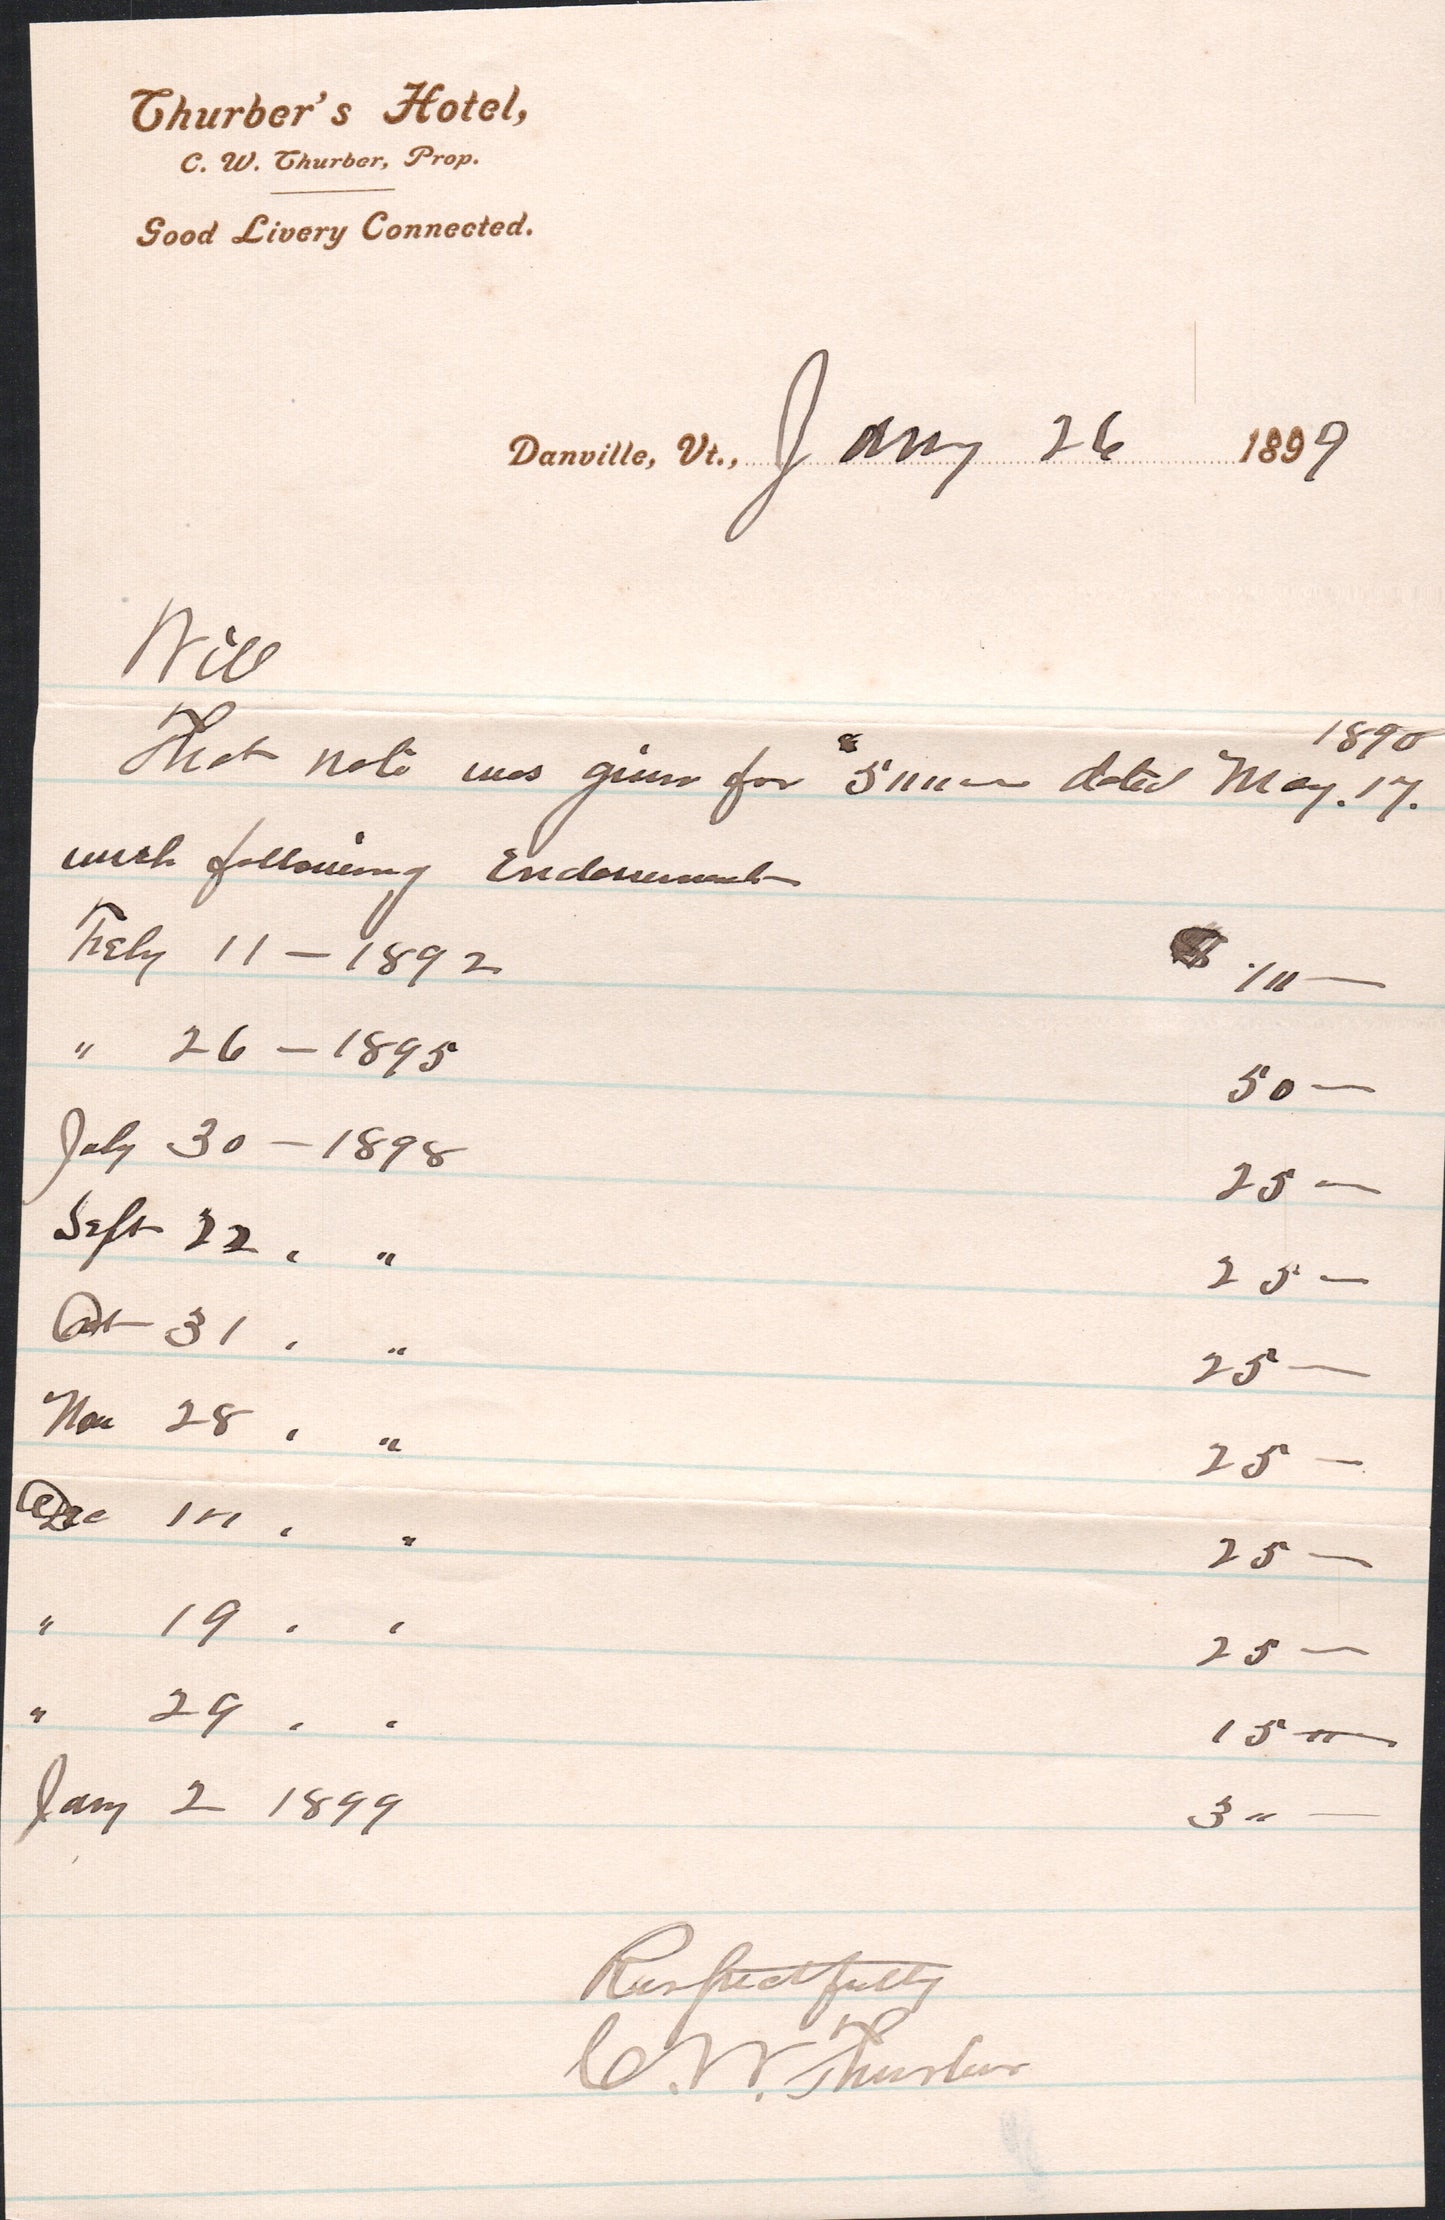 Thurber's Hotel,
C. W. Thurber, Prop.
Good Livery Connected.
Danville, Vt., Jany 26 1899
Will
1890
That note was given for $500— dated May. 17.
with following Endorsements
Feby 11 – 1892 $ 10 —
" 26 – 1895 50 —
July 30 – 1898 25 —
Sept 22 " " 25 —
Oct 31 " " 25 —
Nov 28 " " 25 —
Dec 10 " " 25 —
" 19 " " 25 —
" 29 " " 15 —
Jany 2 1899 30 —
Respectfully
C. W. Thurber